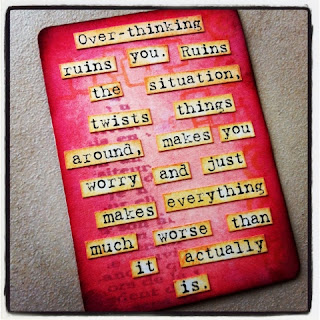 Over-thinking
ruins you. Ruins
the situation,
twists things
around, makes you
worry and just
makes everything
much worse than
it actually
is.